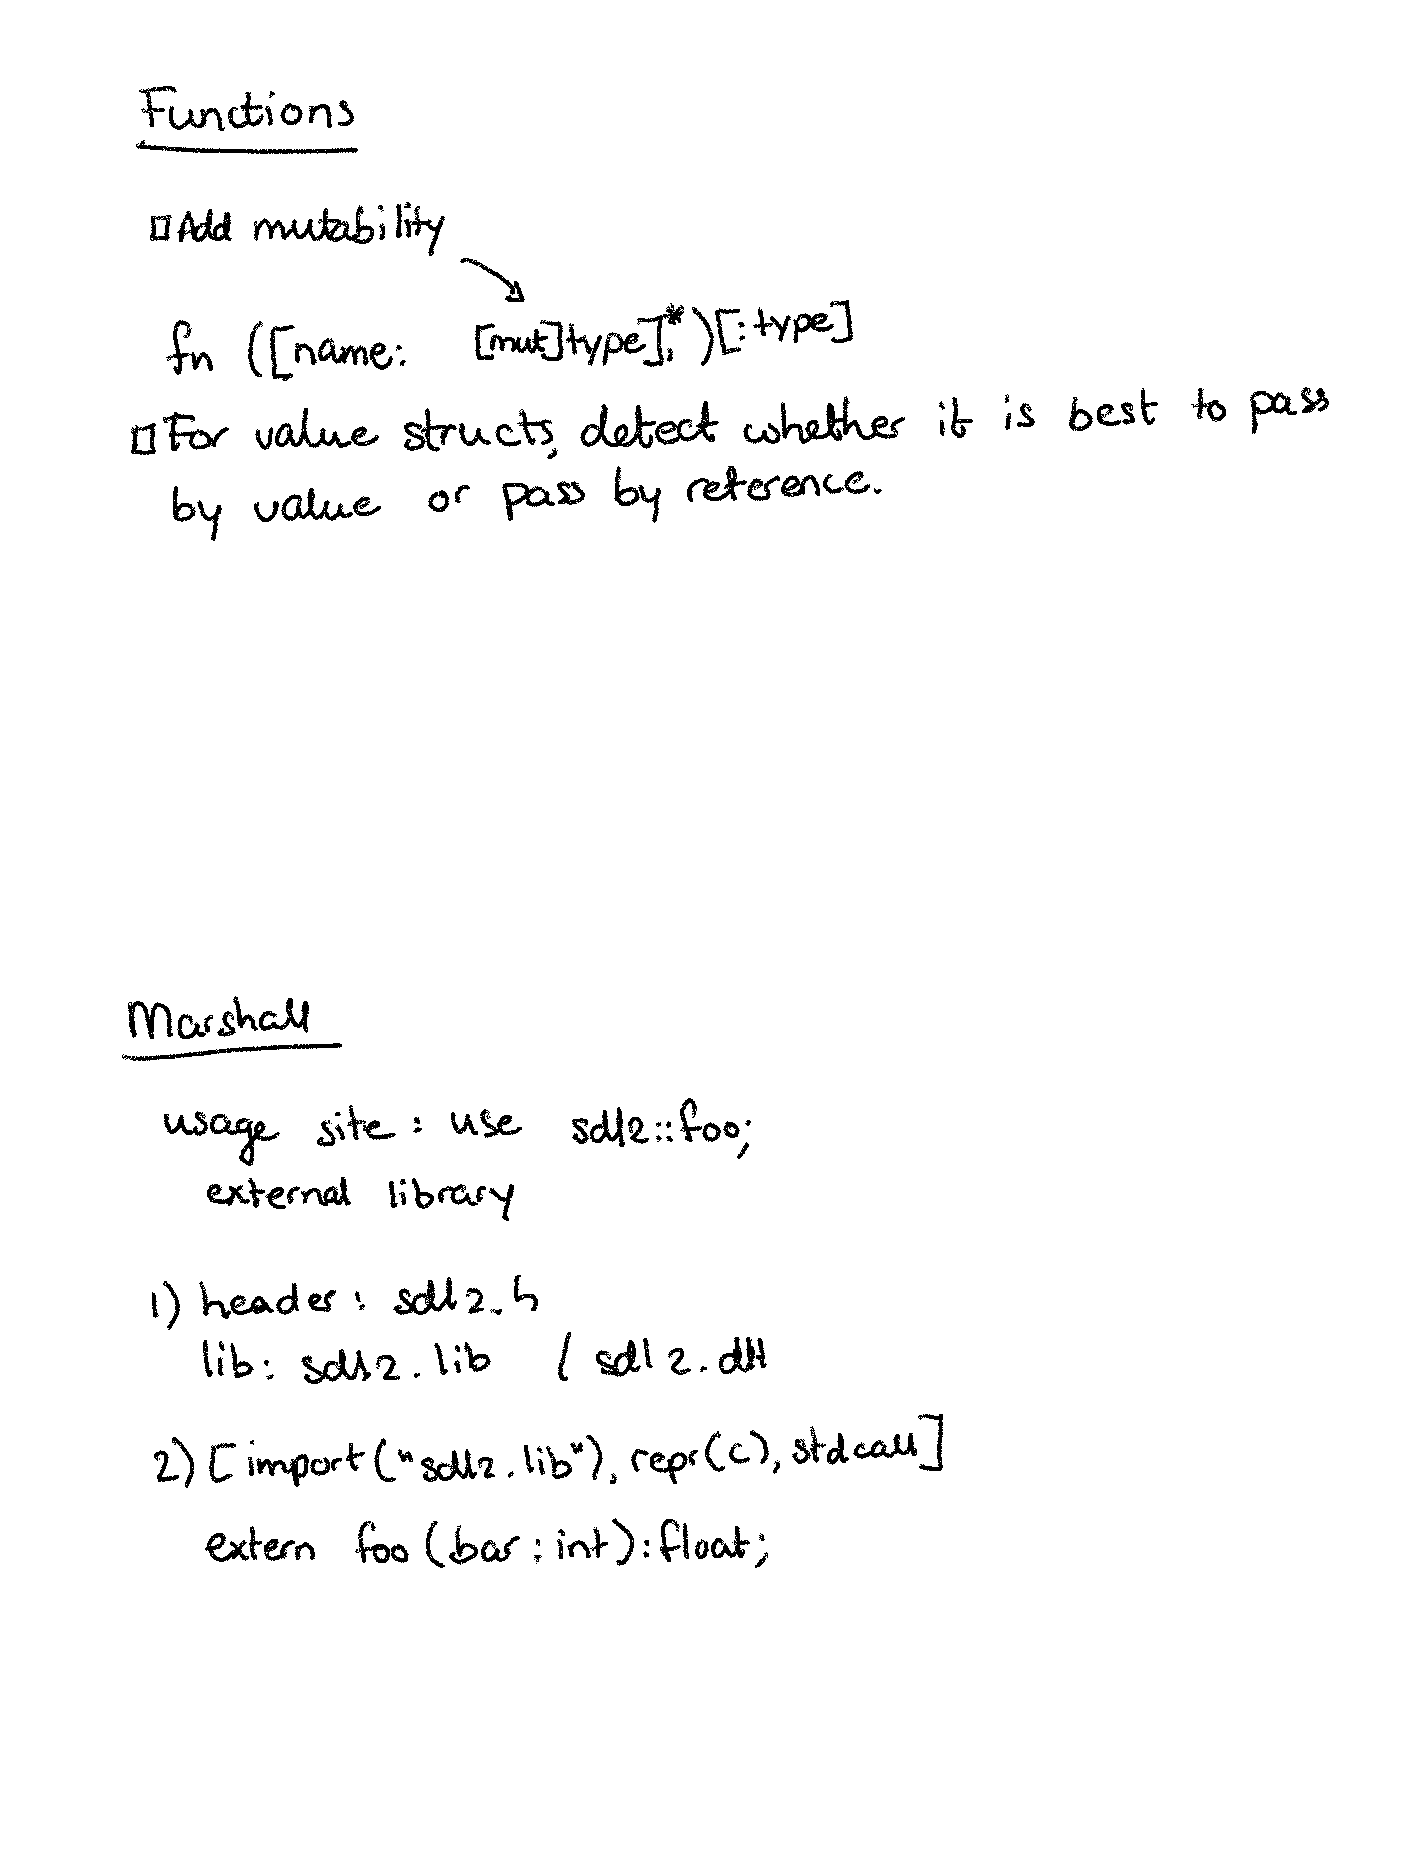 Functions
Add mutability
fn ([name: [mut]type],*)[:type]
For value structs, detect whether it is best to pass
by value or pass by reference.
Marshall
usage site: use sdl2::foo;
external library
1) header: sdl2.h
lib: sdl2.lib / sdl2.dll
2) [import("sdl2.lib"), repr(c), stdcall]
extern foo(bar: int):float;